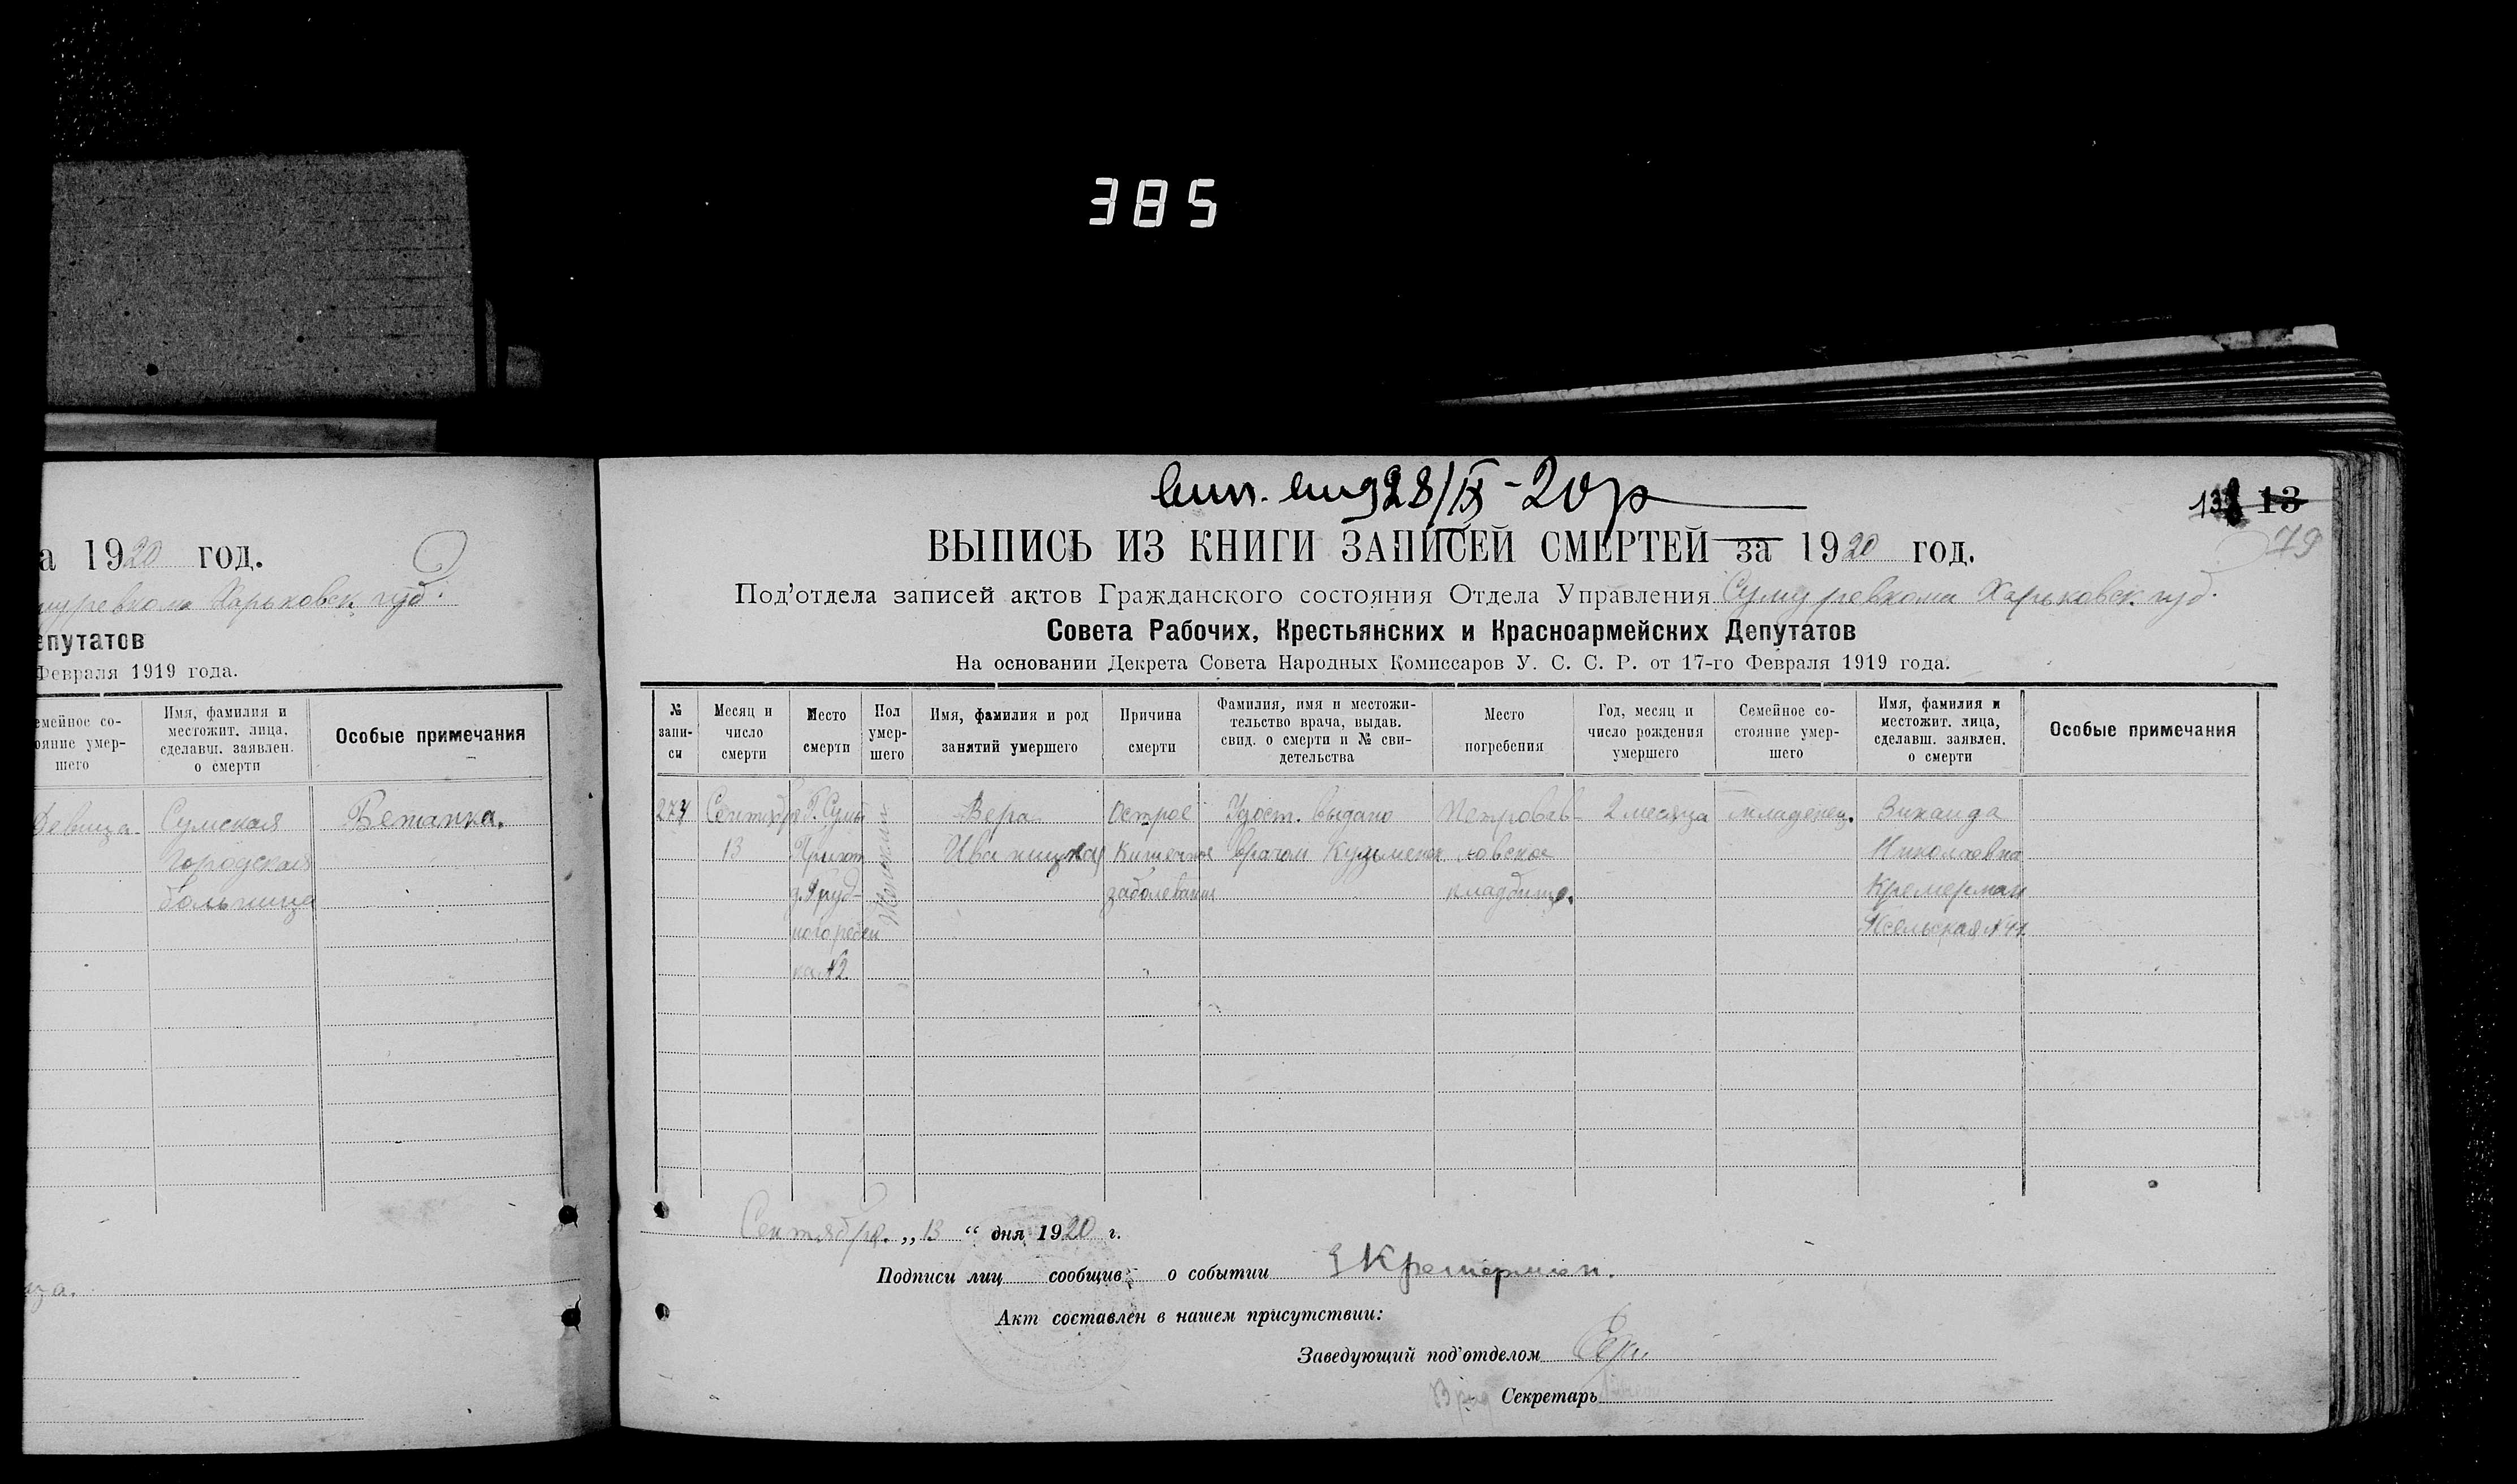 385
а 1920 год.
Харьковск. губ.
епутатов
Февраля 1919 года.
емейное со-
ояние умер-
шего
Имя, фамилия и
местожит. лица,
сделавш. заявлен.
о смерти
Особые примечания
Девица.
Сумская
Городская
больница
Бетанка.
28/IX-20 р
13
79
ВЫПИСЬ ИЗ КНИГИ ЗАПИСЕЙ СМЕРТЕЙ за 1920 год.
Под'отдела записей актов Гражданского состояния Отдела Управления Сумуревкома Харьковск. губ.
Совета Рабочих, Крестьянских и Красноармейских Депутатов
На основании Декрета Совета Народных Комиссаров У. С. С. Р. от 17-го Февраля 1919 года.
№
запи-
си
Месяц и
число
смерти
Место
смерти
Пол
умер-
шего
Имя, фамилия и род
занятий умершего
Причина
смерти
Фамилия, имя и местожи-
тельство врача, выдав.
свид. о смерти и № сви-
детельства
Место
погребения
Год, месяц и
число рождения
умершего
Семейное со-
стояние умер-
шего
Имя, фамилия и
местожит. лица,
сделавш. заявлен.
о смерти
Особые примечания
Сентября
13
Г. Сумы
Приют
д. Груд-
ного ребен
ка №2
Женский
Вера
Иваницкая
Острое
Кишечное
заболевание
Удост. выдано
врачом Кузьменк
Петропав-
ловское
кладбище.
2 месяца
младенец.
Зинаида
Николаевна
Кремерман
Сентября „13“ дня 1920 г.
Подписи лиц сообщив о событии Кремерман.
Акт составлен в нашем присутствии:
Заведующий под'отделом
Врид Секретарь